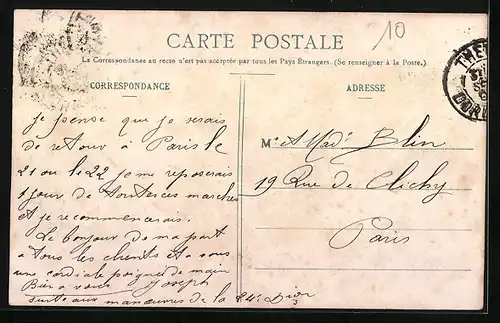 10
CARTE POSTALE
La Correspondance au recto n'est pas acceptée par tous les Pays Étrangers. (Se renseigner à la Poste.)
CORRESPONDANCE
ADRESSE
je pense que je serais
de retour à Paris le
21 ou le 22 je me reposerais
1 jour de toutes ces marches
et je recommencerais.
Le bonjour de ma part
a tous les clients et a vous
une cordiale poignée de main
Bien a vous Joseph
suite aux manœuvres de la 24e Dion
M. et Mad. Blin
19 Rue de Clichy
Paris